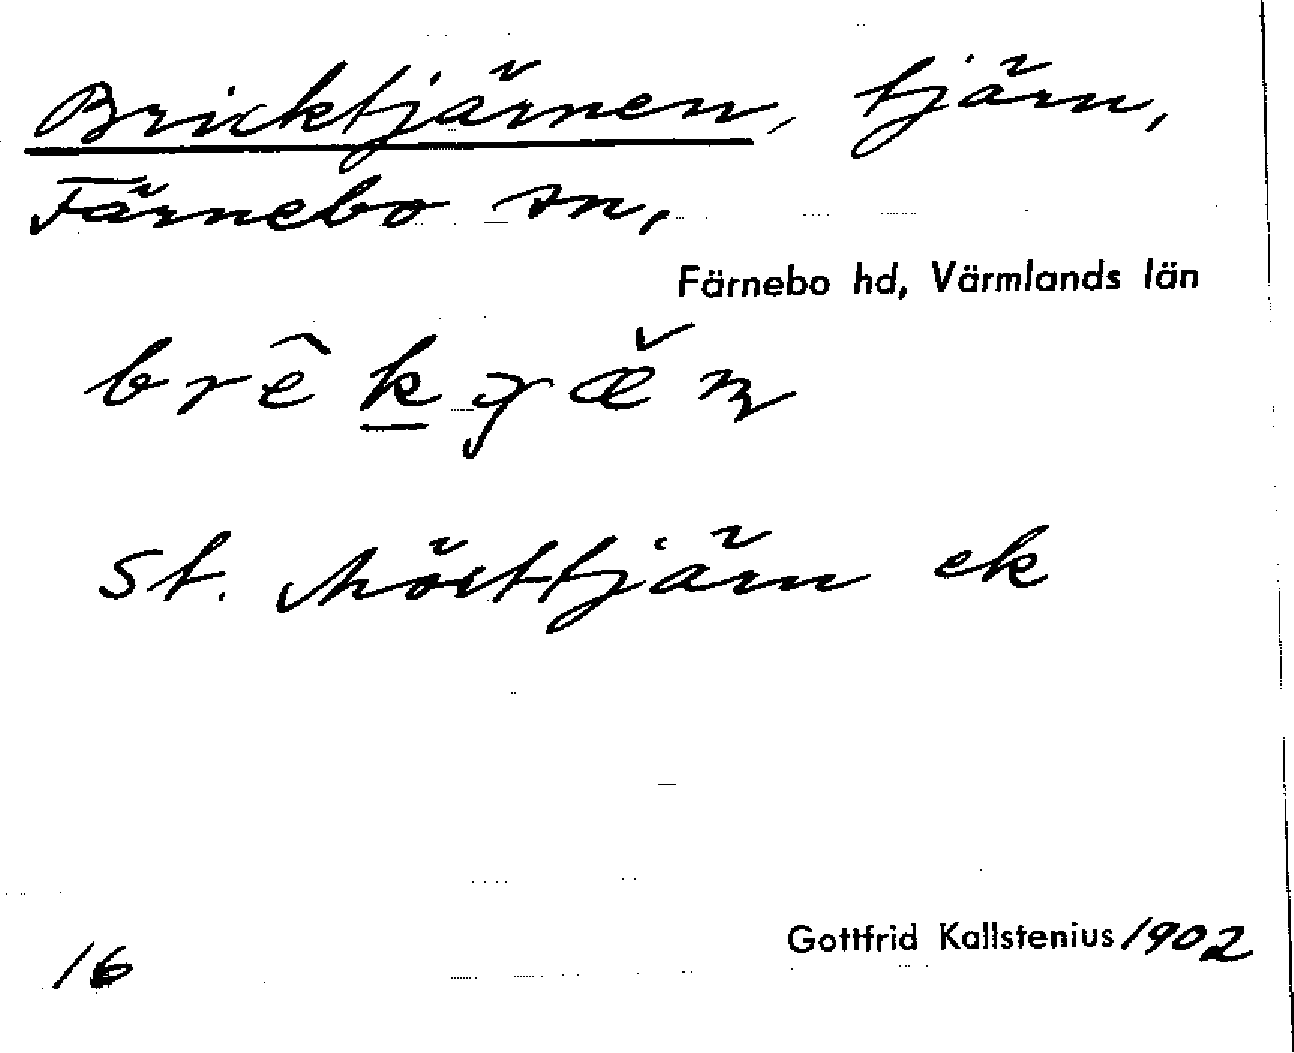 Bricktjärnen, tjärn,
Färnebo sn,
Färnebo hd, Värmlands län
St. tjärn ek
16 Gottfrid Kallstenius 1902